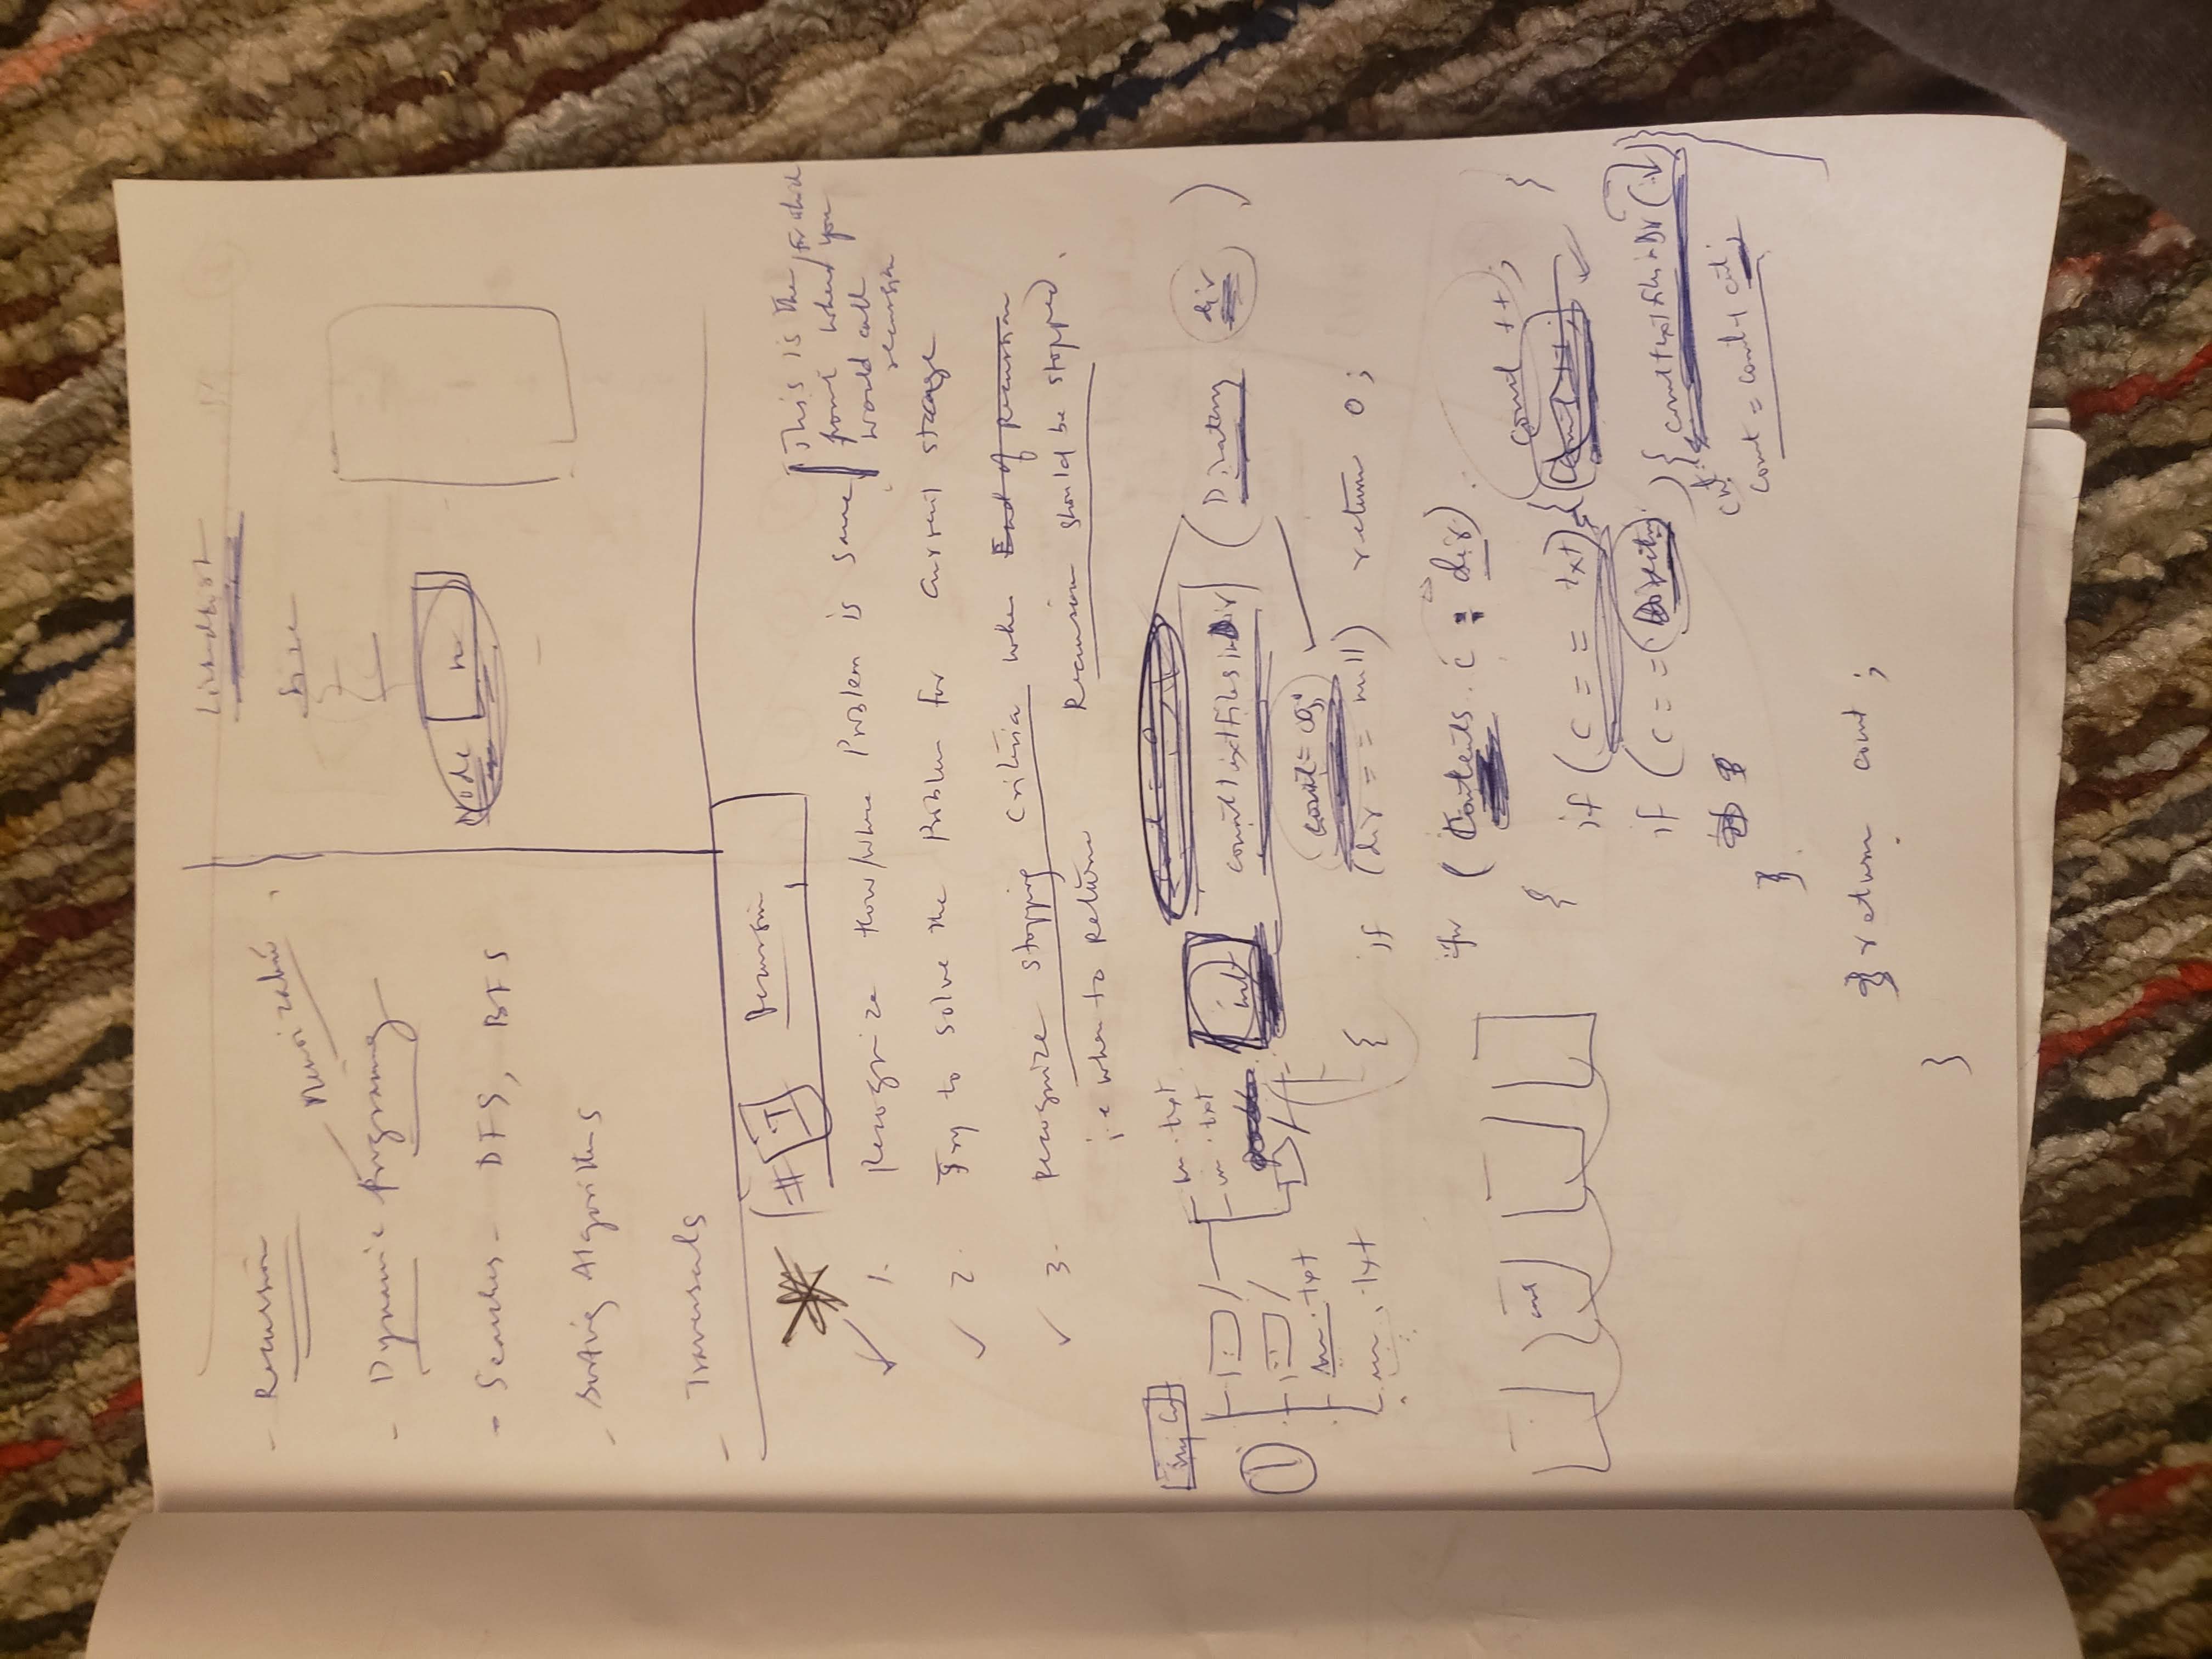 - Recursion
Memoization
- Dynamic Programing
- Searches - DFS, BFS
- Sorting Algorithms
- Traversals
LinkedList
Size
Node n
# T Recursion
1. Recognize How/where Problem is same
This is the point where you would call recursion
for which
2. Try to solve the Problem for current stage
3. Recognize stopping criteria when End of recursion
i.e when to return Recursion should be stopped.
.txt
.txt
.txt
.txt
1
count = 0
int countTextFilesinDir (Directory dir)
count = 0;
{ if (dir == null) return 0;
for (Contents c : dir)
count
{
count ++;
if (c == txt) { count ++; }
if (c == Directory) { countTextFilesinDir ( ) }
cnt
count = count + cnt;
}
} return count;
}